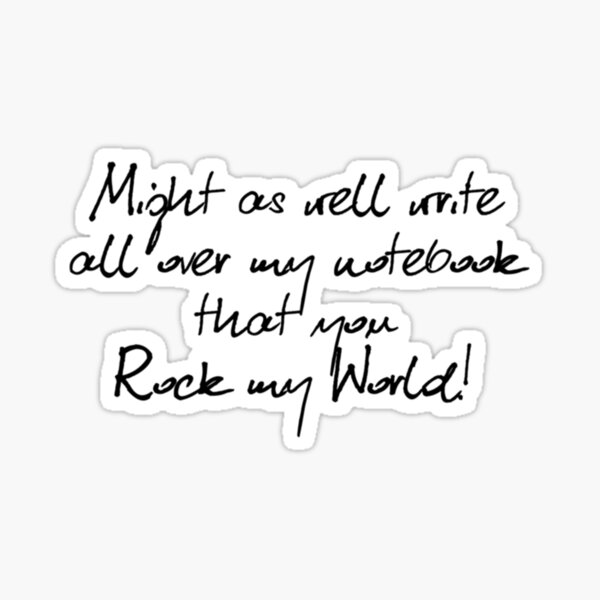 Might as well write
all over my notebook
that you
Rock my World!